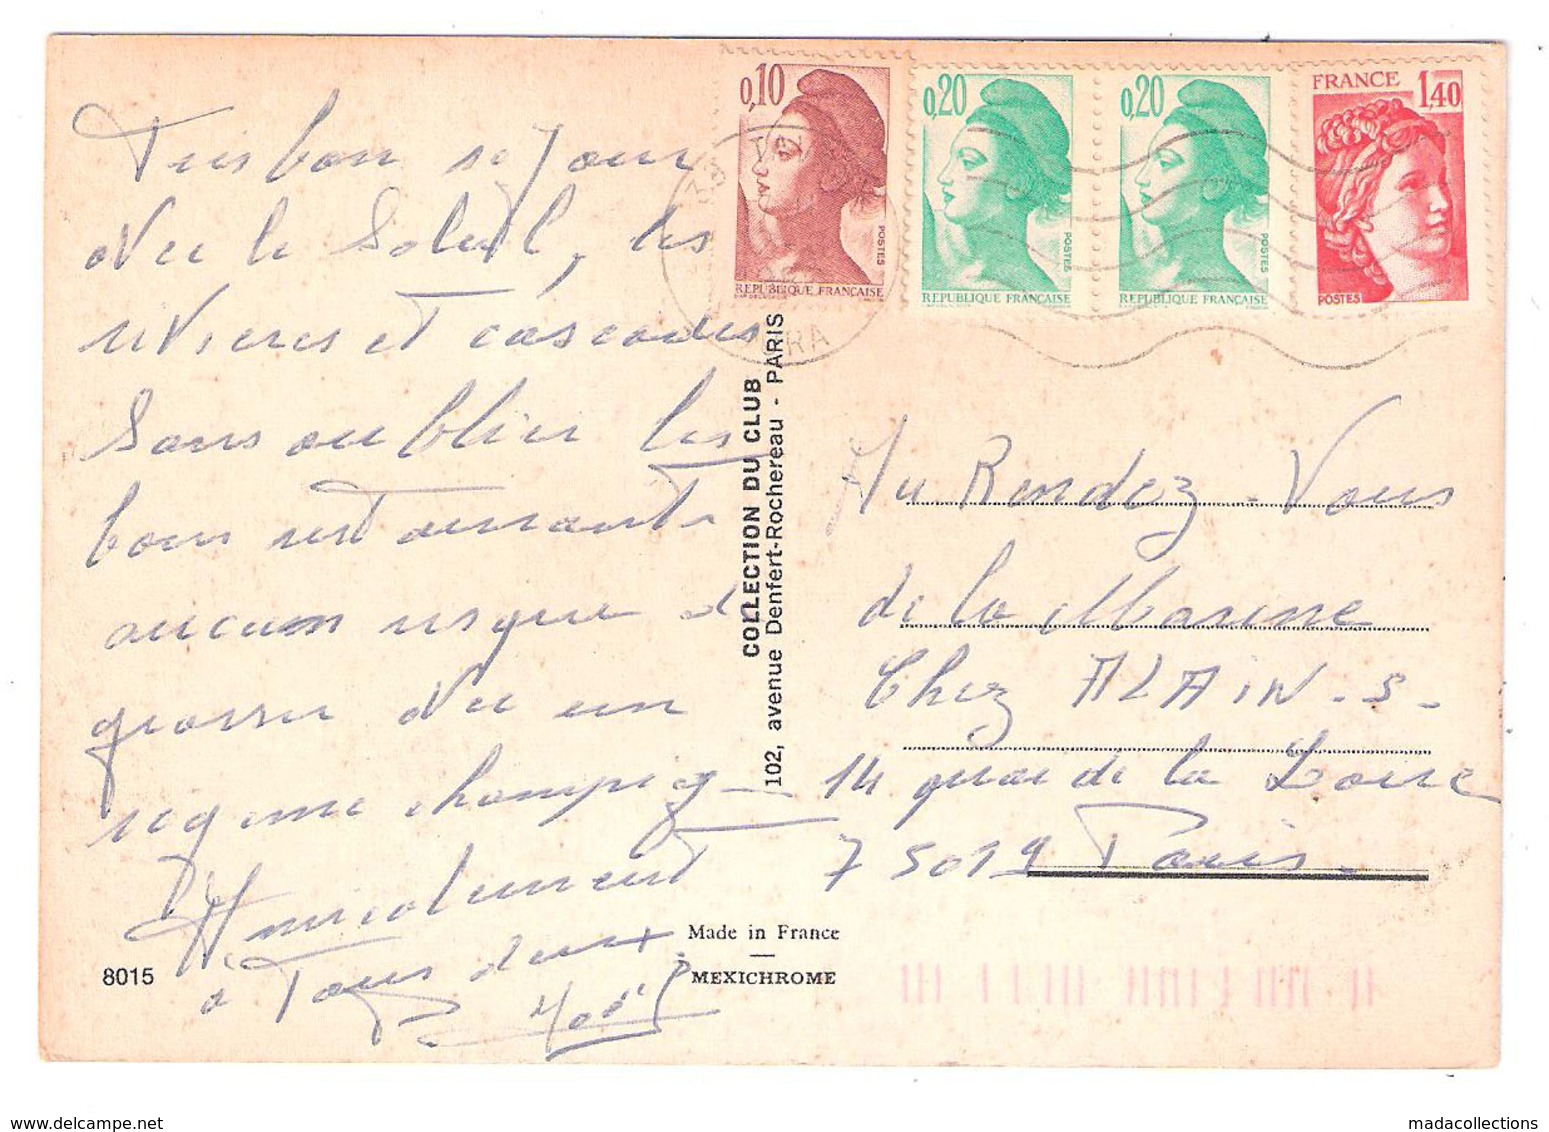 Très bon séjour
avec le Soleil, les
rivieres et cascades
Sans oublier les
bons restaurants
aucun risque de
grossir avec un
regime champig
Amicalement
à Tous deux.
Noël
8015
Made in France
MEXICHROME
COLLECTION DU CLUB
102, avenue Denfert-Rochereau - PARIS
0,10
POSTES
REPUBLIQUE FRANCAISE
0,20
POSTES
REPUBLIQUE FRANÇAISE
0,20
POSTES
REPUBLIQUE FRANÇAISE
FRANCE 1,40
POSTES
Au Rendez-Vous
de la Marine
Chez ALAIN-S-
14 quai de la Loire
75019 Paris.
madacollections